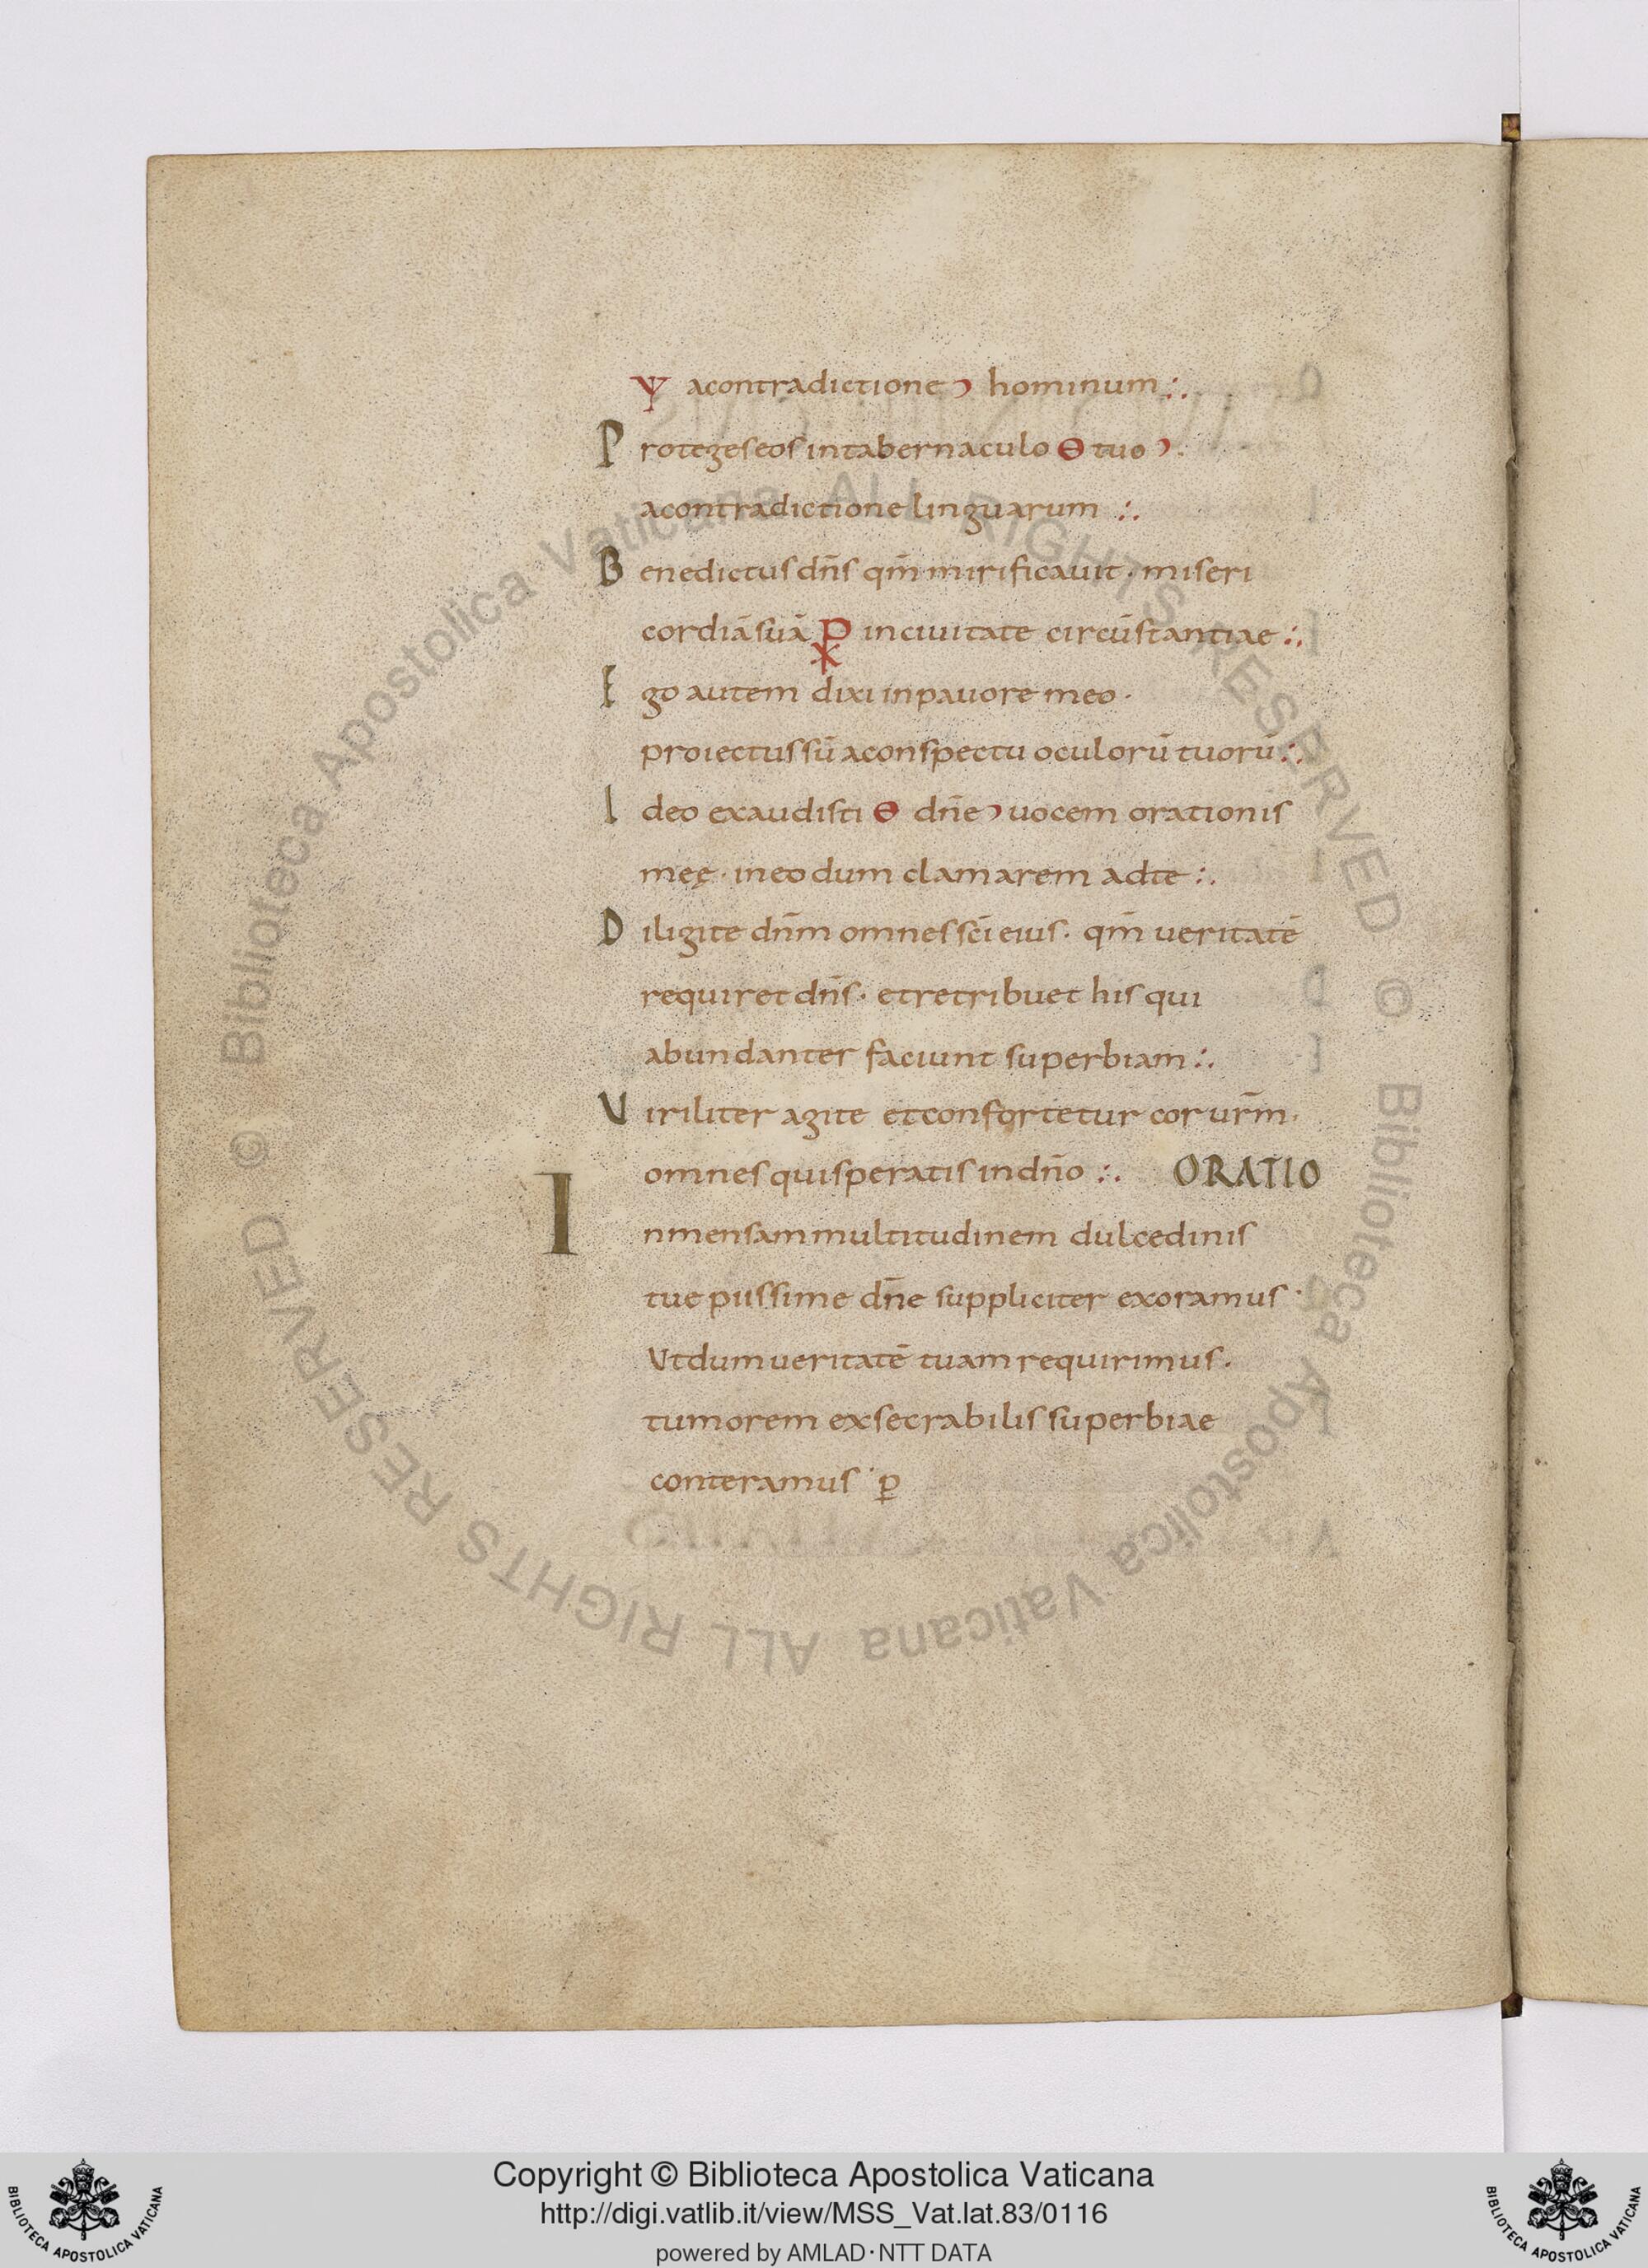 Ѱ acontradictione ɔ hominum :.
Protegeseos intabernaculo Θ tuo ɔ.
acontradictione linguarum :.
Benedictus dn̄s qm̄ mirificauit · miseri
cordiā suā ⳩ inciuitate circūstantiae :.
Ego autem dixi inpauore meo ·
proiectus sū aconspectu oculorū tuorū :.
Ideo exaudisti Θ dn̄e ɔ uocem orationis
meę · ineo dum clamarem adte :.
Diligite dn̄m omnes sc̄i eius · qm̄ ueritatē
requiret dn̄s · etretribuet his qui
abundanter faciunt superbiam :.
Uiriliter agite etconfortetur cor urm̄ ·
omnes quisperatis indn̄o :. ORATIO
Inmensam multitudinem dulcedinis
tue piissime dn̄e suppliciter exoramus ·
Utdum ueritatē tuam requirimus ·
tumorem exsecrabilis superbiae
conteramus · ꝑ
© Biblioteca Apostolica Vaticana ALL RIGHTS RESERVED © Biblioteca Apostolica Vaticana ALL RIGHTS RESERVED
Copyright © Biblioteca Apostolica Vaticana
http://digi.vatlib.it/view/MSS_Vat.lat.83/0116
powered by AMLAD·NTT DATA
BIBLIOTECA APOSTOLICA VATICANA
BIBLIOTECA APOSTOLICA VATICANA